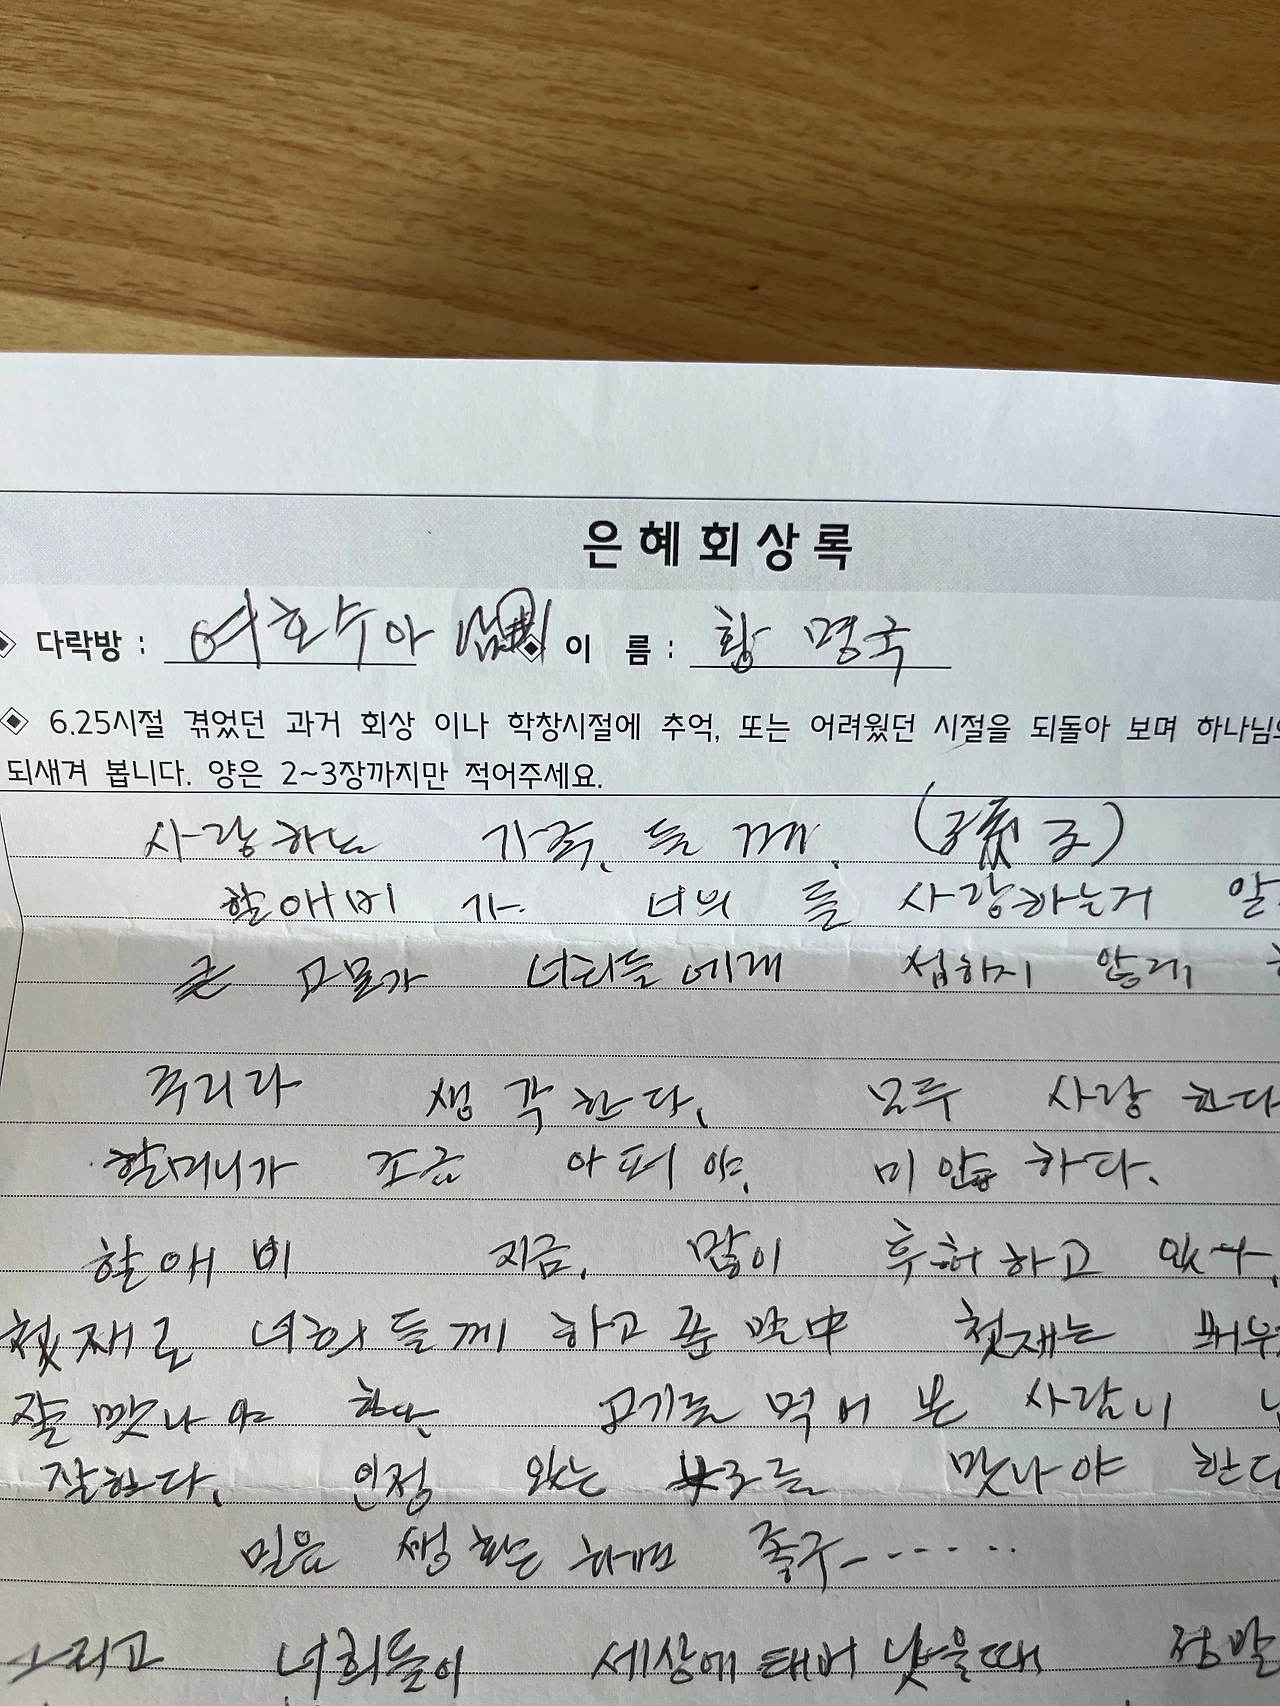 은혜회상록
◈ 다락방 : 여호수아 ◈ 이 름 : 황 명국
◈ 6.25시절 겪었던 과거 회상 이나 학창시절에 추억, 또는 어려웠던 시절을 되돌아 보며 하나님의
되새겨 봅니다. 양은 2~3장까지만 적어주세요.
사랑하는 가족. 들 께. (孫子)
할애비 가. 너의 들 사랑하는거 알
큰 고모가 너희들 에게 섭하지 않게
주리라 생각한다. 모두 사랑 한다
할머니가 조금 아퍼 야. 미안 하다.
할애비 지금. 많이 후허하고 있다.
첫재로 너희들께 하고 푼 말中 첫재는 배우
잘 맞나야 한다 고기를 먹어 본 사람이
잘한다. 인정 있는 女子를 맞나야 한다
믿음 생활을 하면 좋구 - - - - - -
그리고 너희들이 세상에 태버 낫을때 정말